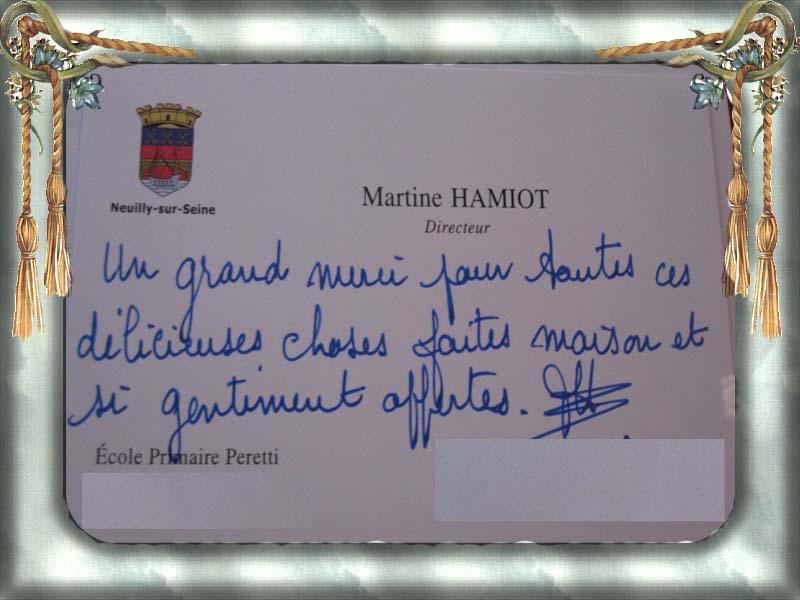 Neuilly-sur-Seine
Martine HAMIOT
Directeur
Un grand merci pour toutes ces
délicieuses choses faites maison et
si gentiment offertes.
École Primaire Peretti